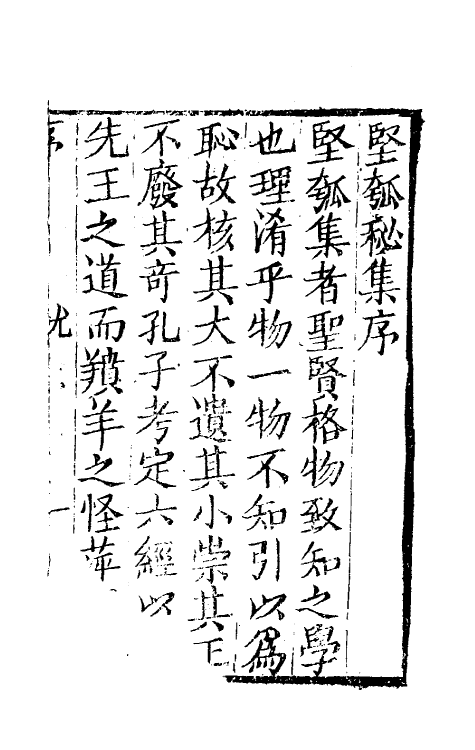 堅瓠秘集序
堅瓠集者聖賢格物致知之學
也理淆乎物一物不知引以爲
恥故核其大不遺其小崇其正
不廢其奇孔子考定六經以
先王之道而羵羊之怪萍
序 尤 一